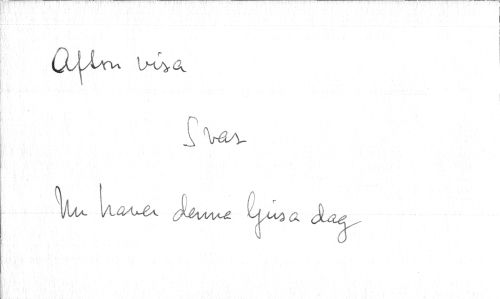 Afton visa
Svar
Nu haver denna ljusa dag